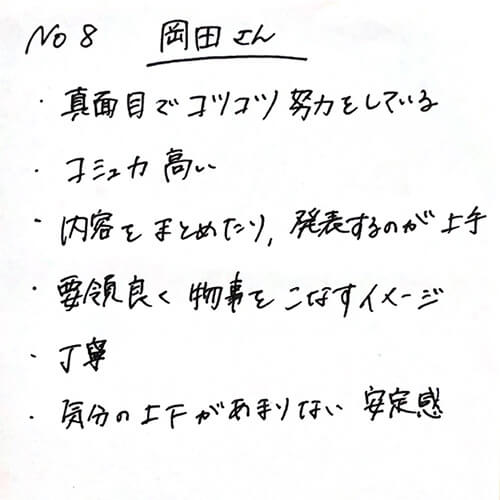 No 8 岡田さん
・真面目でコツコツ努力をしている
・コミュ力高い
・内容をまとめたり, 発表するのが上手
・要領良く物事をこなすイメージ
・丁寧
・気分の上下があまりない 安定感